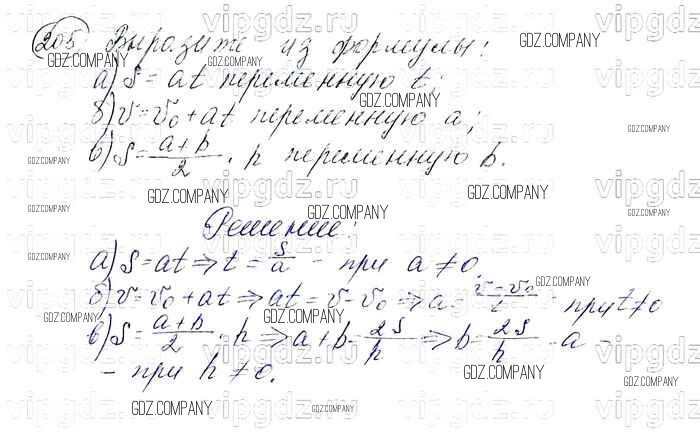 205 Выразите из формулы:
а) S = at переменную t;
б) v = v₀ + at переменную a;
в) S = (a+b)/2 · h переменную b.
Решение:
а) S = at ⇒ t = S/a - при a ≠ 0.
б) v = v₀ + at ⇒ at = v - v₀ ⇒ a = (v - v₀)/t - при t ≠ 0
в) S = (a+b)/2 · h ⇒ a + b = 2S/h ⇒ b = 2S/h - a -
- при h ≠ 0.
vipgdz.ru
GDZ.COMPANY